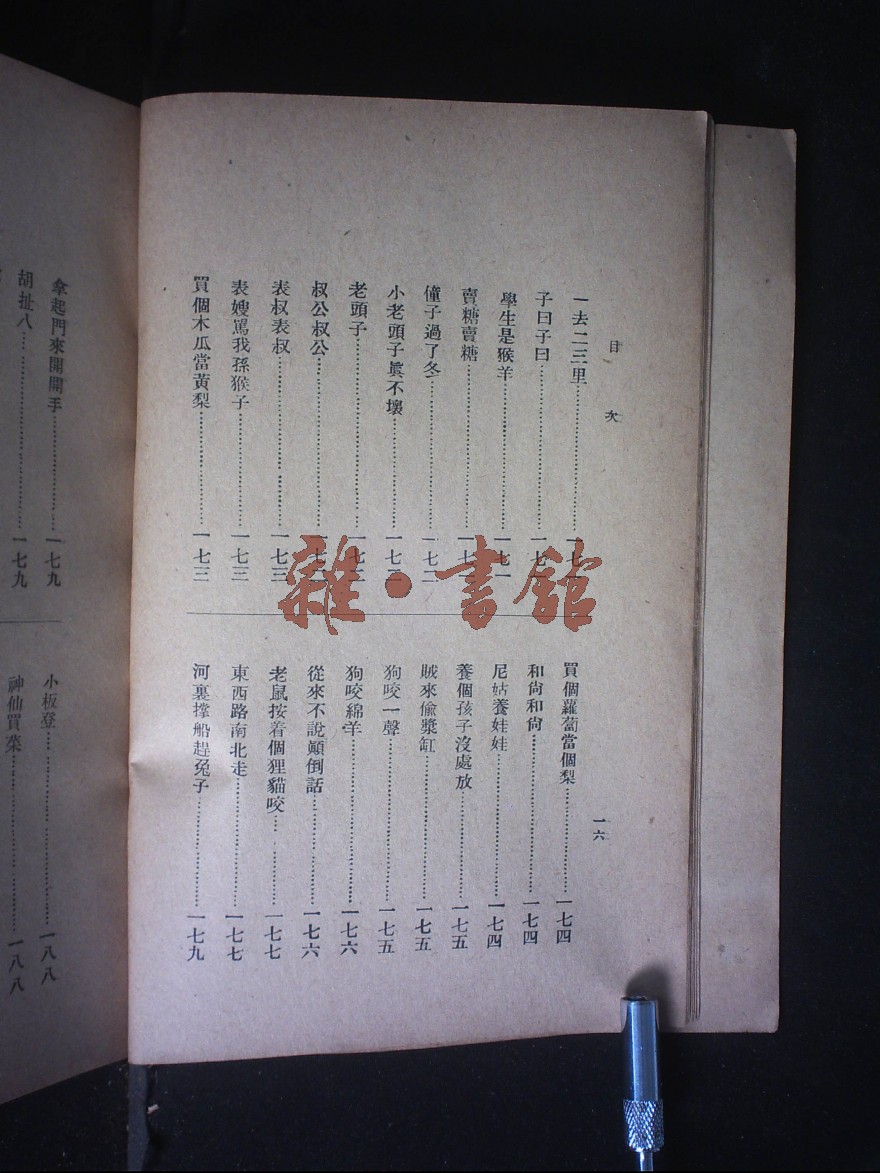 目次
一去二三里
子曰子曰
學生是猴羊
賣糖賣糖
僮子過了冬 一七二
小老頭子眞不壞
老頭子
叔公叔公
表叔表叔 一七三
表嫂罵我孫猴子 一七三
買個木瓜當黃梨 一七三
一六
買個蘿蔔當個梨 一七四
和尙和尙 一七四
尼姑養娃娃 一七四
養個孩子沒處放 一七五
賊來偸漿缸 一七五
狗咬一聲 一七五
狗咬綿羊 一七六
從來不說顚倒話 一七六
老鼠按着個狸貓咬 一七七
東西路南北走 一七七
河裏撑船趕兔子 一七九
拿起門來開開手 一七九
胡扯八 一七九
小板登 一八八
神仙買菜 一八八
雜·書館